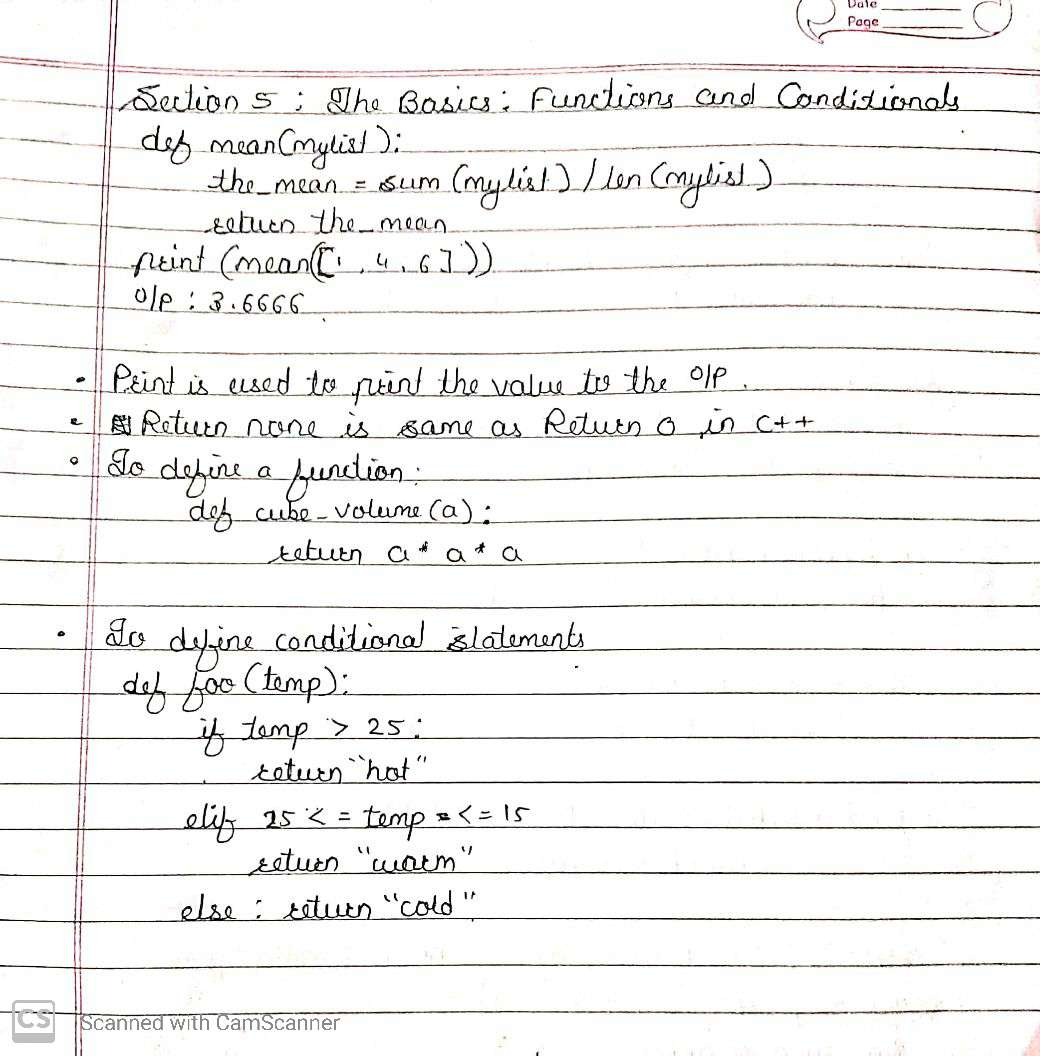 Date
Page
Section 5 : The Basics : Functions and Conditionals
def mean(mylist):
the_mean = sum (mylist) / len (mylist)
return the_mean
print (mean([1, 4, 6]))
o/p : 3.6666
• Print is used to print the value to the o/p.
• Return none is same as Return 0 in C++
• To define a function :
def cube_volume (a) :
return a * a * a
• To define conditional statements
def foo (temp):
if temp > 25 :
return "hot"
elif 25 < = temp = < = 15
return "warm"
else : return "cold"
CS Scanned with CamScanner